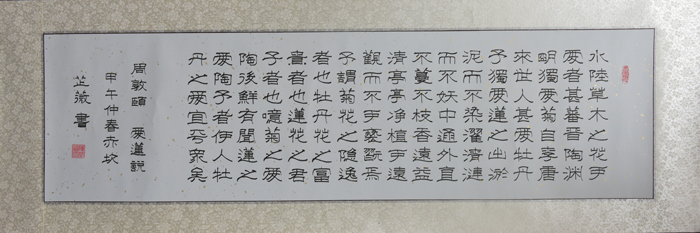 水陸草木之花可
愛者甚蕃晉陶淵
明獨愛菊自李唐
來世人甚愛牡丹
予獨愛蓮之出淤
泥而不染濯清漣
而不妖中通外直
不蔓不枝香遠益
清亭亭净植可遠
觀而不可褻翫焉
予謂菊花之隱逸
者也牡丹花之富
貴者也蓮花之君
子者也噫菊之愛
陶後鮮有聞蓮之
愛同予者何人牡
丹之愛宜乎眾矣
周敦頤 愛蓮說
甲午仲春赤坎
芷薇書